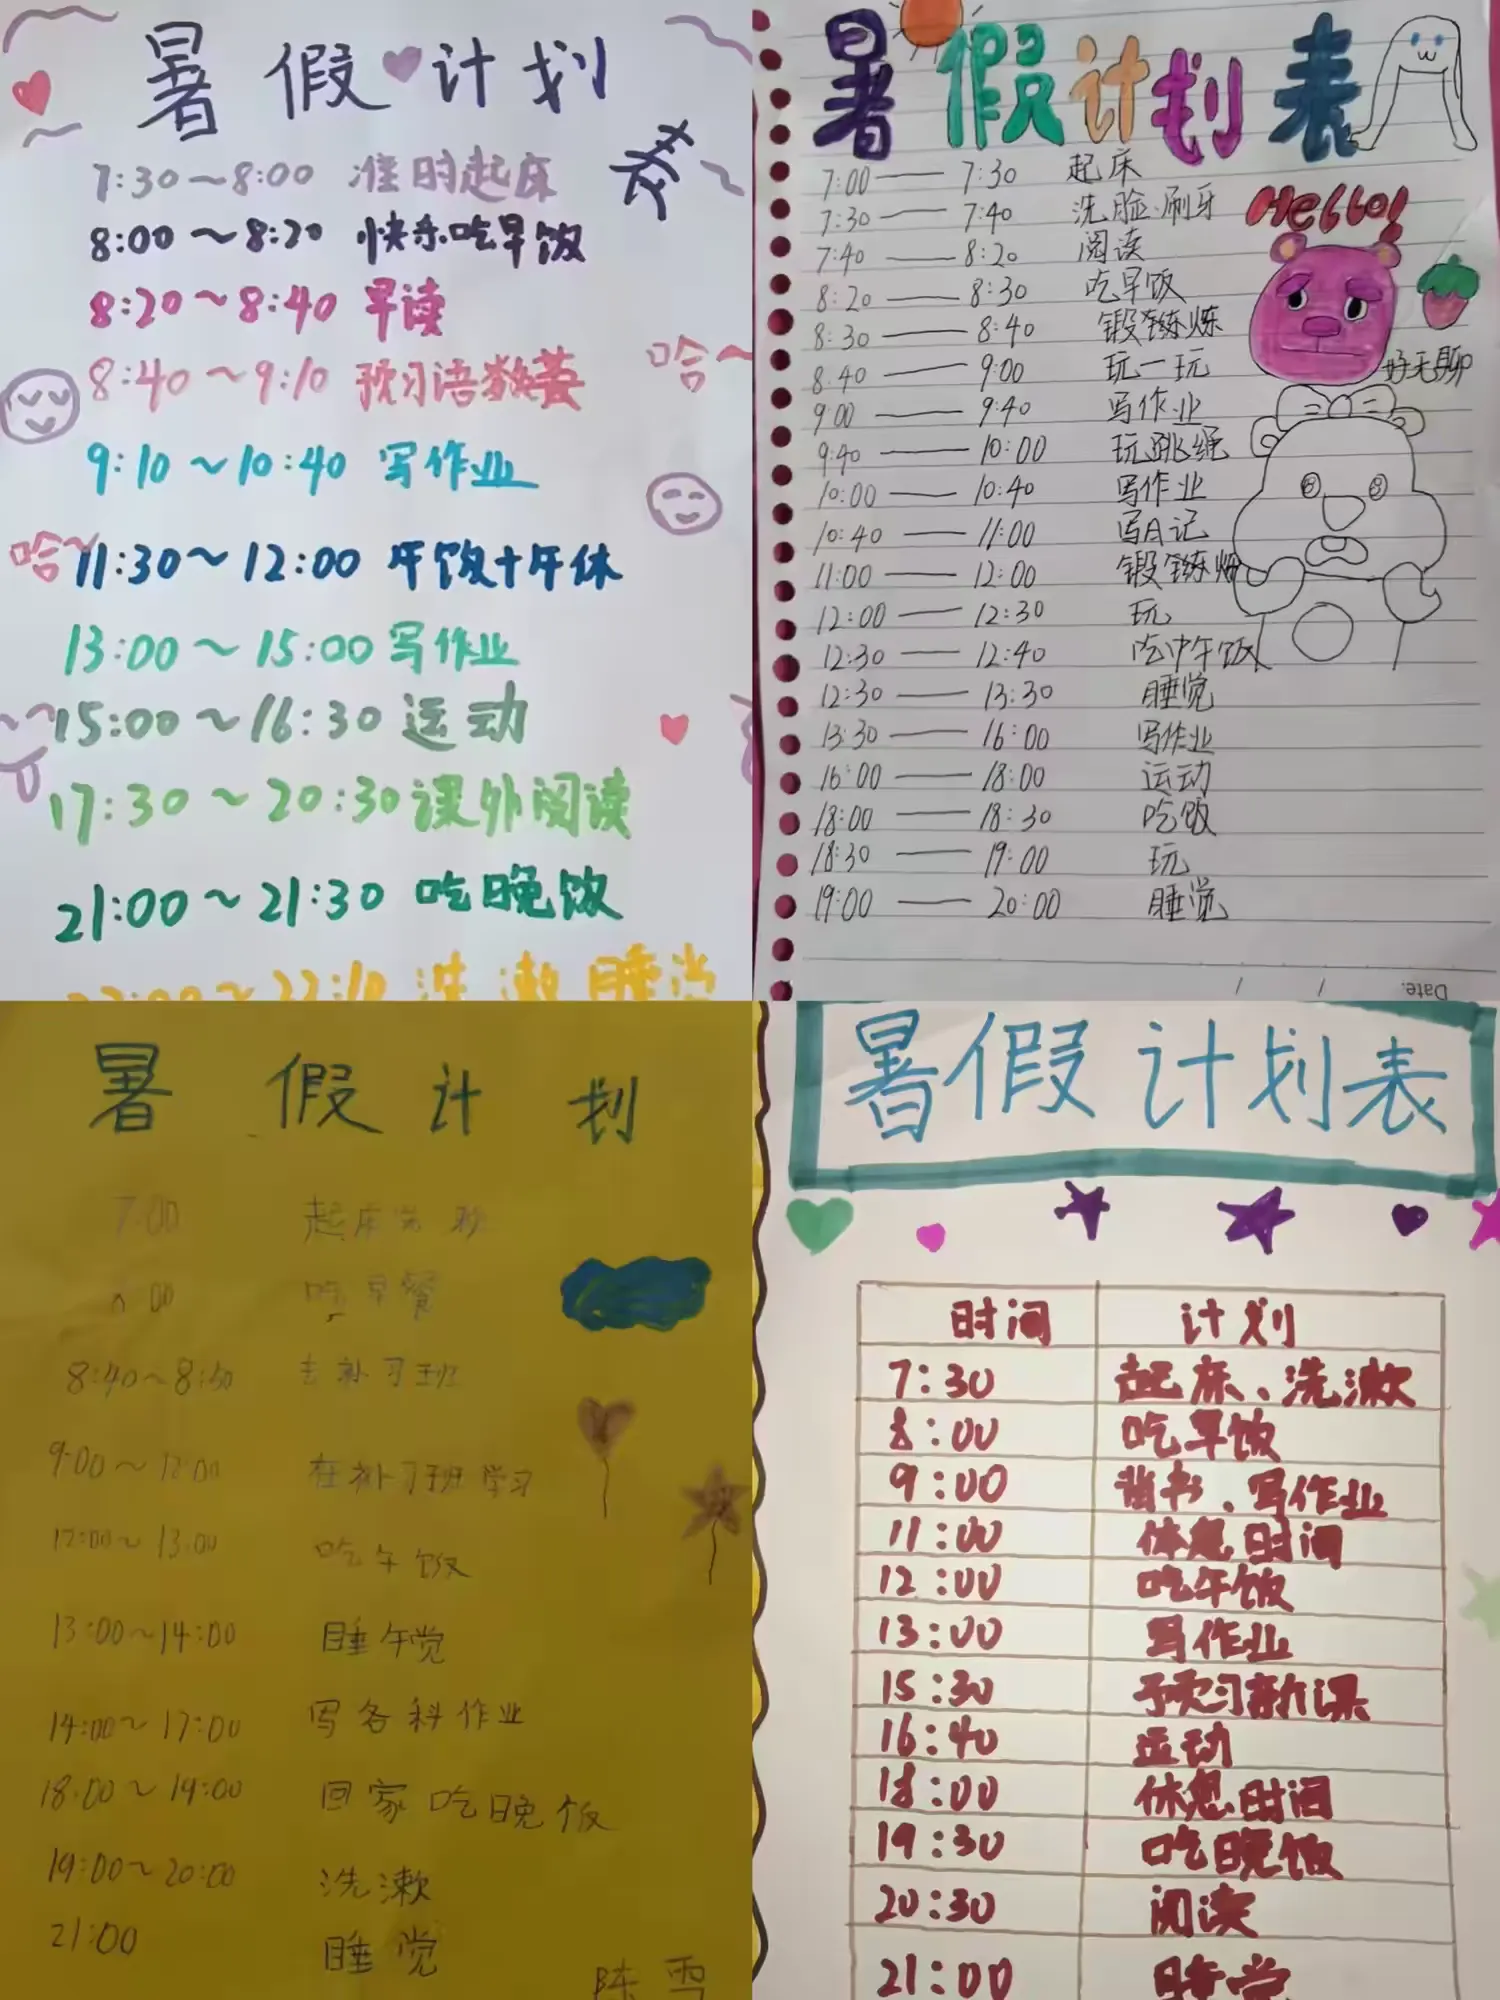 暑假计划
表
7:30~8:00 准时起床
8:00~8:20 快乐吃早饭
8:20~8:40 早读
哈~
8:40~9:10 预习语数英
9:10~10:40 写作业
哈~
11:30~12:00 午饭+午休
13:00~15:00 写作业
15:00~16:30 运动
17:30~20:30 课外阅读
21:00~21:30 吃晚饭
洗漱睡觉
暑假计划表
7:00——7:30 起床
7:30——7:40 洗脸刷牙
Hello!
7:40——8:20 阅读
8:20——8:30 吃早饭
8:30——8:40 锻练炼
8:40——9:00 玩一玩
好无聊
9:00——9:40 写作业
9:40——10:00 玩跳绳
10:00——10:40 写作业
10:40——11:00 写日记
11:00——12:00 锻练炼
12:00——12:30 玩
12:30——12:40 吃中午饭
12:30——13:30 睡觉
13:30——16:00 写作业
16:00——18:00 运动
18:00——18:30 吃饭
18:30——19:00 玩
19:00——20:00 睡觉
Date:
暑假计划
7:00 起床
8:00 吃早餐
8:40~8:50 去补习班
9:00~12:00 在补习班学习
12:00~13:00 吃午饭
13:00~14:00 睡午觉
14:00~17:00 写各科作业
18:00~19:00 回家吃晚饭
19:00~20:00 洗漱
21:00 睡觉
陈雪
暑假计划表
时间 计划
7:30 起床、洗漱
8:00 吃早饭
9:00 背书、写作业
11:00 休息时间
12:00 吃午饭
13:00 写作业
15:30 预习新课
16:40 运动
18:00 休息时间
19:30 吃晚饭
20:30 阅读
21:00 睡觉